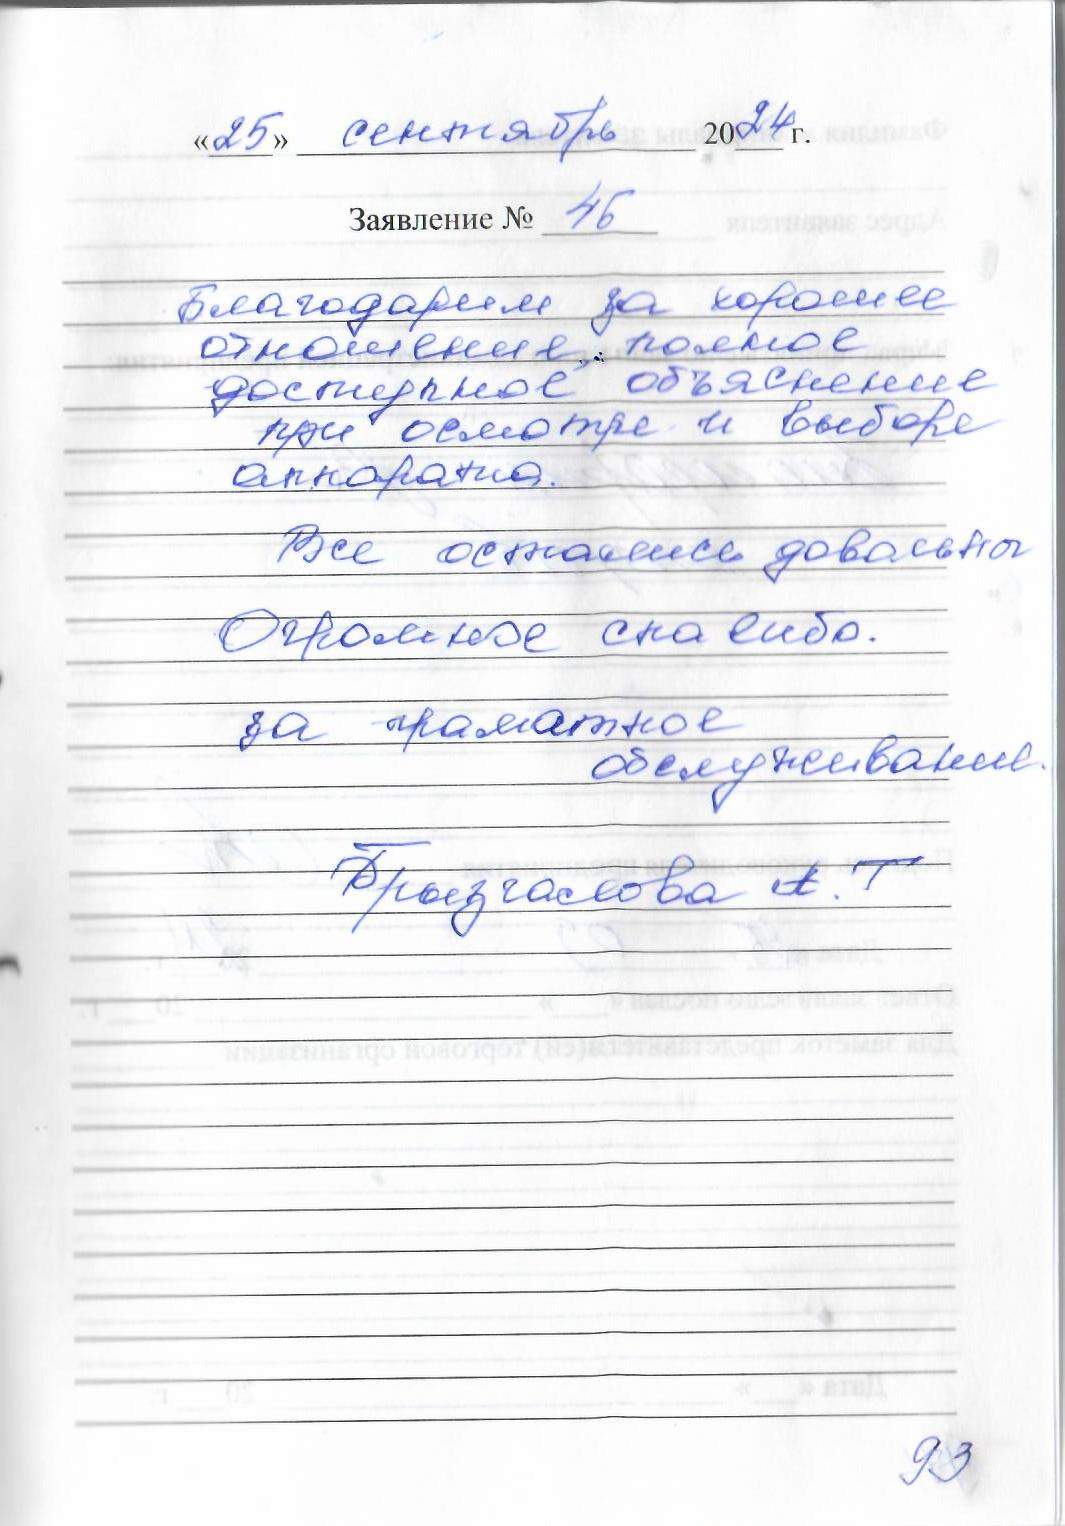 «25» сентябрь 2024 г.
Заявление № 46
Благодарим за хорошее
отношение, полное
доступное объяснение
при осмотре и выборе
аппарата.
Все остались довольны
Огромное спасибо.
за граматное
обслуживание.
Брызгалова А. Т
93